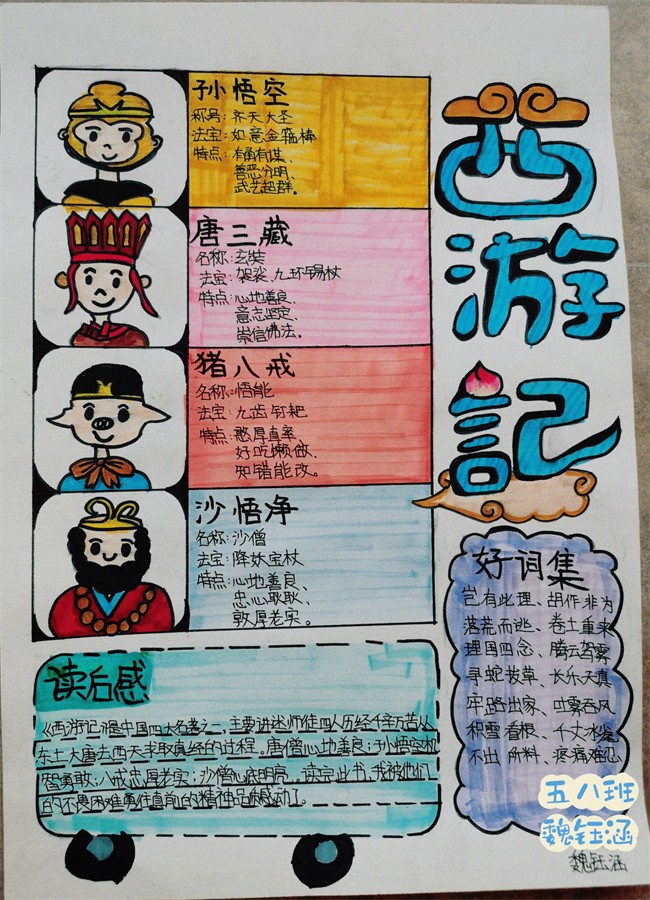 西游记
孙悟空
称号：齐天大圣
法宝：如意金箍棒
特点：有勇有谋、
善恶分明、
武艺超群。
唐三藏
名称：玄奘
法宝：袈裟、九环锡杖
特点：心地善良、
意志坚定、
崇信佛法。
猪八戒
名称：悟能
法宝：九齿钉耙
特点：憨厚直率、
好吃懒做、
知错能改。
沙悟净
名称：沙僧
法宝：降妖宝杖
特点：心地善良、
忠心耿耿、
敦厚老实。
好词集
岂有此理、胡作非为
落荒而逃、卷土重来
理国四念、腾云驾雾
寻蛇拨草、长乐天真
牢路出家、吐雾吞风
积雪看根、千丈水
不出所料、疼痛难忍
读后感
《西游记》是中国四大名著之一，主要讲述师徒四人历经千辛万苦从
东土大唐去西天求取真经的过程。唐僧心地善良；孙悟空机
智勇敢；八戒忠厚老实；沙僧心底明亮。读完此书，我被他们
的不畏困难勇往直前的精神品质感动了。
五八班
魏钰涵
魏钰涵